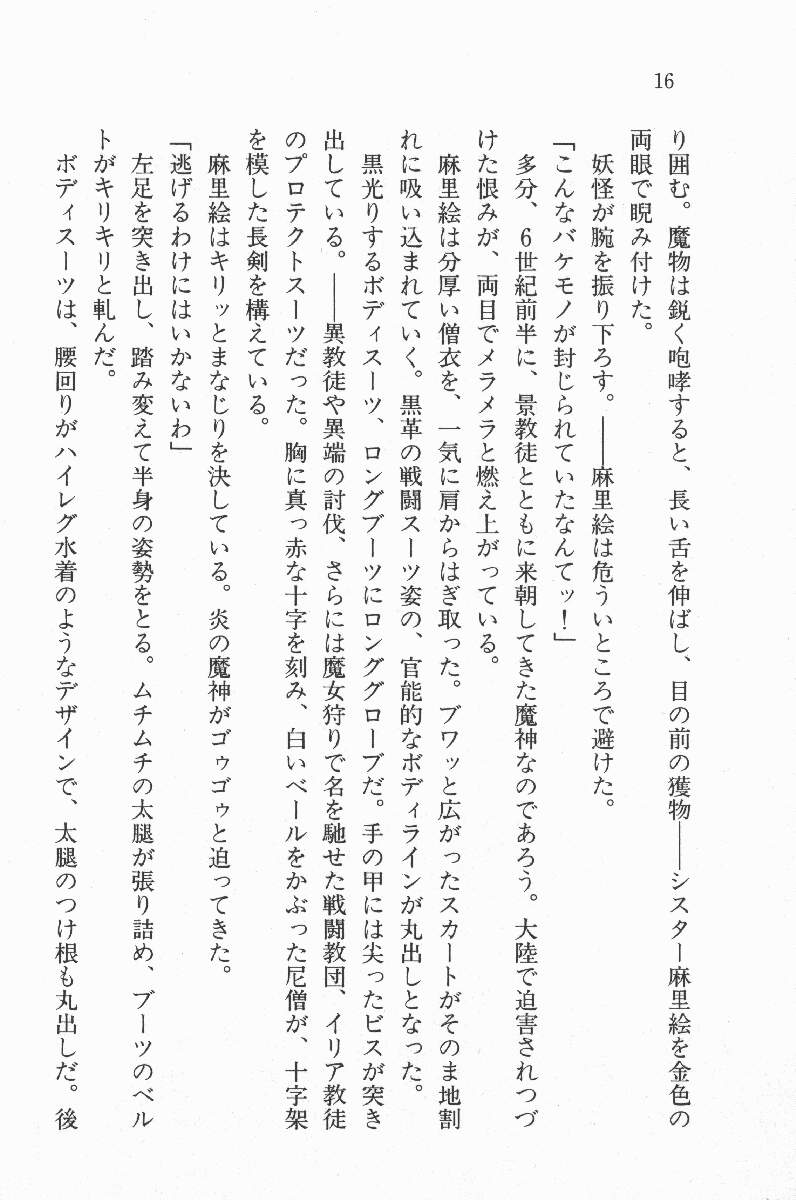 16
り囲む。魔物は鋭く咆哮すると、長い舌を伸ばし、目の前の獲物――シスター麻里絵を金色の
両眼で睨み付けた。
妖怪が腕を振り下ろす。――麻里絵は危ういところで避けた。
「こんなバケモノが封じられていたなんてッ！」
多分、6世紀前半に、景教徒とともに来朝してきた魔神なのであろう。大陸で迫害されつづ
けた恨みが、両目でメラメラと燃え上がっている。
麻里絵は分厚い僧衣を、一気に肩からはぎ取った。ブワッと広がったスカートがそのまま地割
れに吸い込まれていく。黒革の戦闘スーツ姿の、官能的なボディラインが丸出しとなった。
黒光りするボディスーツ、ロングブーツにロンググローブだ。手の甲には尖ったビスが突き
出している。――異教徒や異端の討伐、さらには魔女狩りで名を馳せた戦闘教団、イリア教徒
のプロテクトスーツだった。胸に真っ赤な十字を刻み、白いベールをかぶった尼僧が、十字架
を模した長剣を構えている。
麻里絵はキリッとまなじりを決している。炎の魔神がゴゥゴゥと迫ってきた。
「逃げるわけにはいかないわ」
左足を突き出し、踏み変えて半身の姿勢をとる。ムチムチの太腿が張り詰め、ブーツのベル
トがキリキリと軋んだ。
ボディスーツは、腰回りがハイレグ水着のようなデザインで、太腿のつけ根も丸出しだ。後